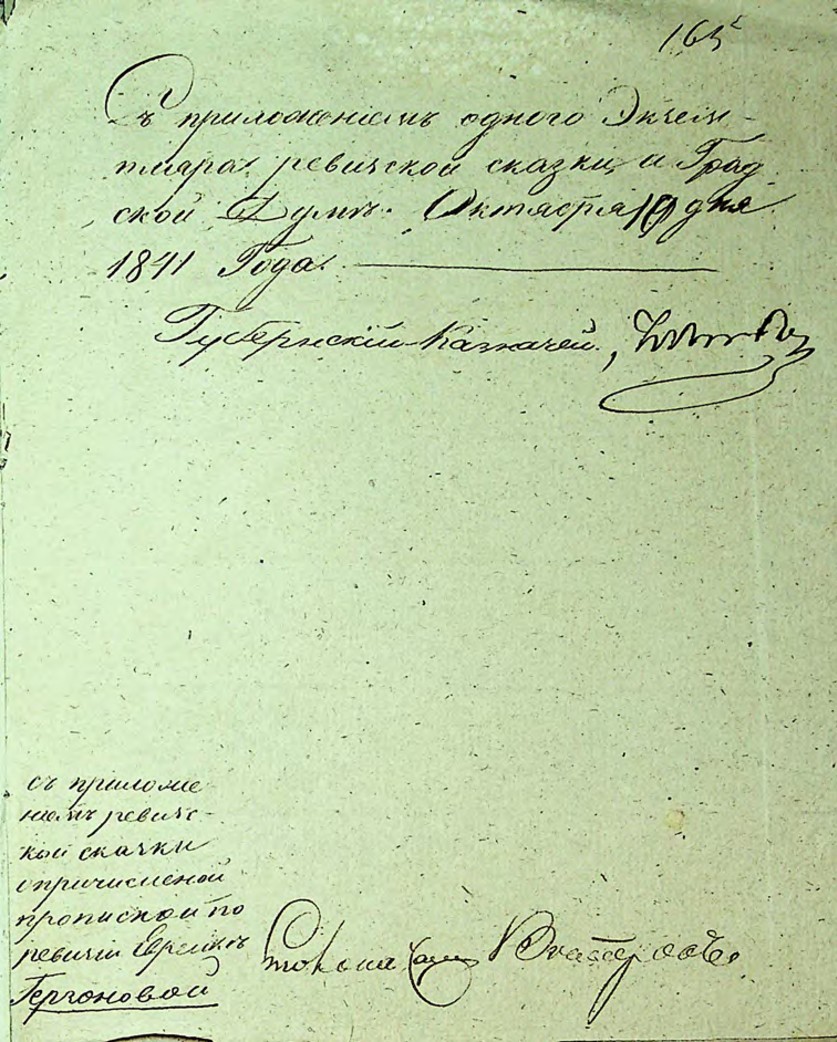 165
Съ приложеніемъ одного Экзем-
пляра ревизской сказки, и Град
ской Думѣ. Октября 19 дня
1841 Года.
Губернскій Казначей,
съ приложе
ніемъ ревизс-
кой сказки
о причисленой
прописной по
ревизіи Еврейкѣ
Герчоновой